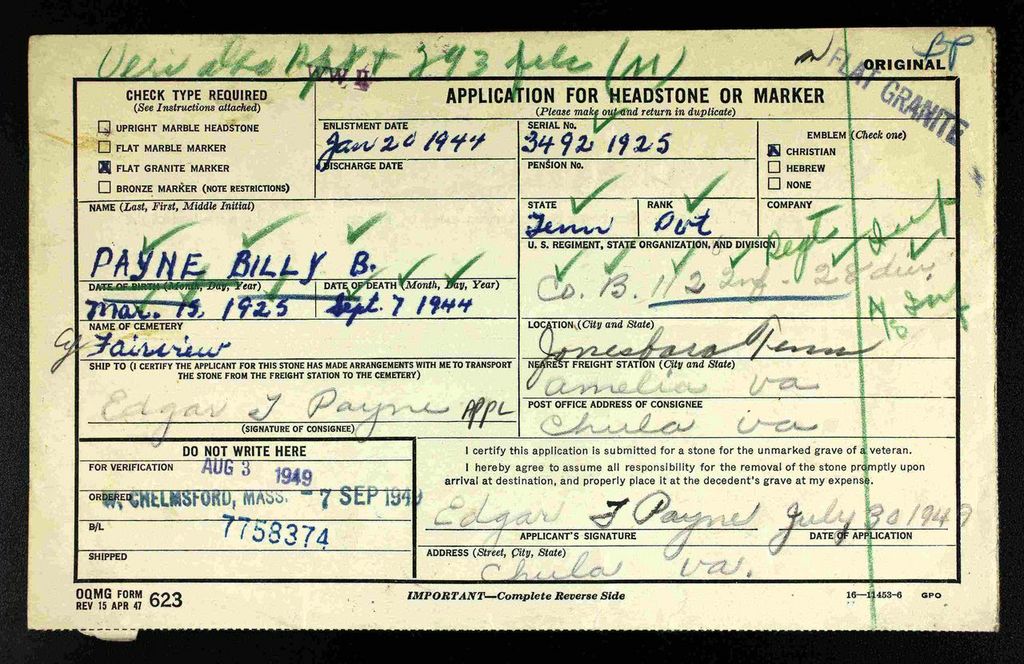 WW II
ORIGINAL
FLAT GRANITE
CHECK TYPE REQUIRED
(See Instructions attached)
UPRIGHT MARBLE HEADSTONE
FLAT MARBLE MARKER
X FLAT GRANITE MARKER
BRONZE MARKER (NOTE RESTRICTIONS)
APPLICATION FOR HEADSTONE OR MARKER
(Please make out and return in duplicate)
ENLISTMENT DATE
Jan 20 1944
DISCHARGE DATE
SERIAL No.
3492 1925
PENSION No.
EMBLEM (Check one)
X CHRISTIAN
HEBREW
NONE
NAME (Last, First, Middle Initial)
PAYNE BILLY B.
STATE
Tenn
RANK
Pvt
COMPANY
U. S. REGIMENT, STATE ORGANIZATION, AND DIVISION
Co. B. 112 Inf. 28 div.
Regt
DATE OF BIRTH (Month, Day, Year)
Mar. 15, 1925
DATE OF DEATH (Month, Day, Year)
Sept. 7 1944
NAME OF CEMETERY
Fairview
LOCATION (City and State)
Jonesboro Tenn
SHIP TO (I CERTIFY THE APPLICANT FOR THIS STONE HAS MADE ARRANGEMENTS WITH ME TO TRANSPORT
THE STONE FROM THE FREIGHT STATION TO THE CEMETERY)
Edgar T Payne APPL
(SIGNATURE OF CONSIGNEE)
NEAREST FREIGHT STATION (City and State)
amelia va
POST OFFICE ADDRESS OF CONSIGNEE
Chula va
DO NOT WRITE HERE
FOR VERIFICATION
AUG 3 1949
ORDERED
W. CHELMSFORD, MASS. - 7 SEP 1949
B/L
7758374
SHIPPED
I certify this application is submitted for a stone for the unmarked grave of a veteran.
I hereby agree to assume all responsibility for the removal of the stone promptly upon
arrival at destination, and properly place it at the decedent's grave at my expense.
Edgar T Payne July 30 1949
APPLICANT'S SIGNATURE
DATE OF APPLICATION
ADDRESS (Street, City, State)
Chula va.
OQMG FORM
REV 15 APR 47 623
IMPORTANT—Complete Reverse Side
16—11453-6 GPO